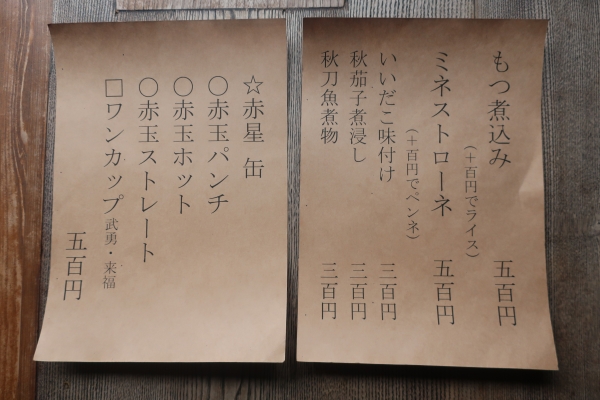 もつ煮込み 五百円
(+百円でライス)
ミネストローネ 五百円
(+百円でペンネ)
いいだこ味付け 三百円
秋茄子煮浸し 三百円
秋刀魚煮物 三百円
☆赤星 缶
○赤玉パンチ
○赤玉ホット
○赤玉ストレート
□ワンカップ 武勇・来福
五百円